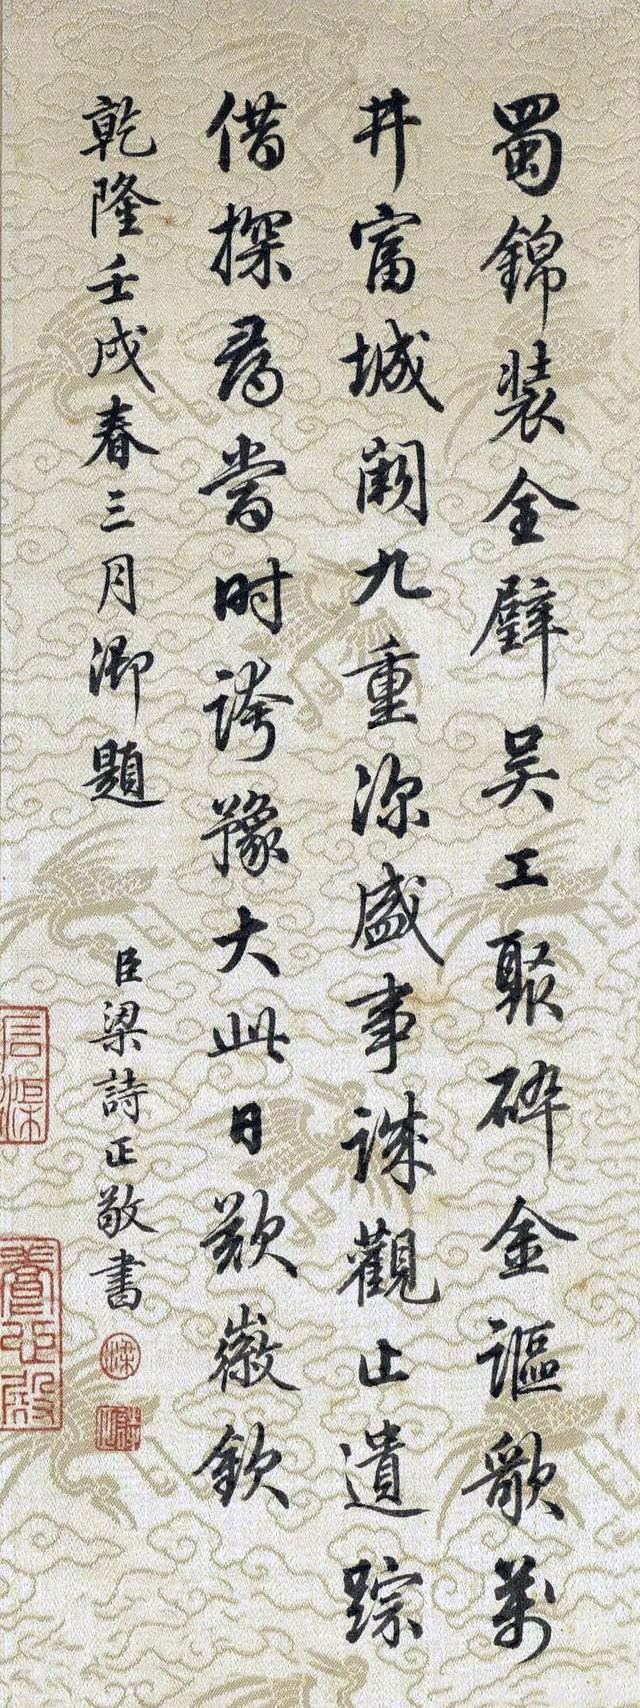 蜀錦裝全璧吳工聚碎金謳歌萬
井富城闕九重深盛事誠觀止遺踪
借探尋當时誇豫大此日歎徽欽
乾隆壬戌春三月御題
臣梁詩正敬書
養心殿